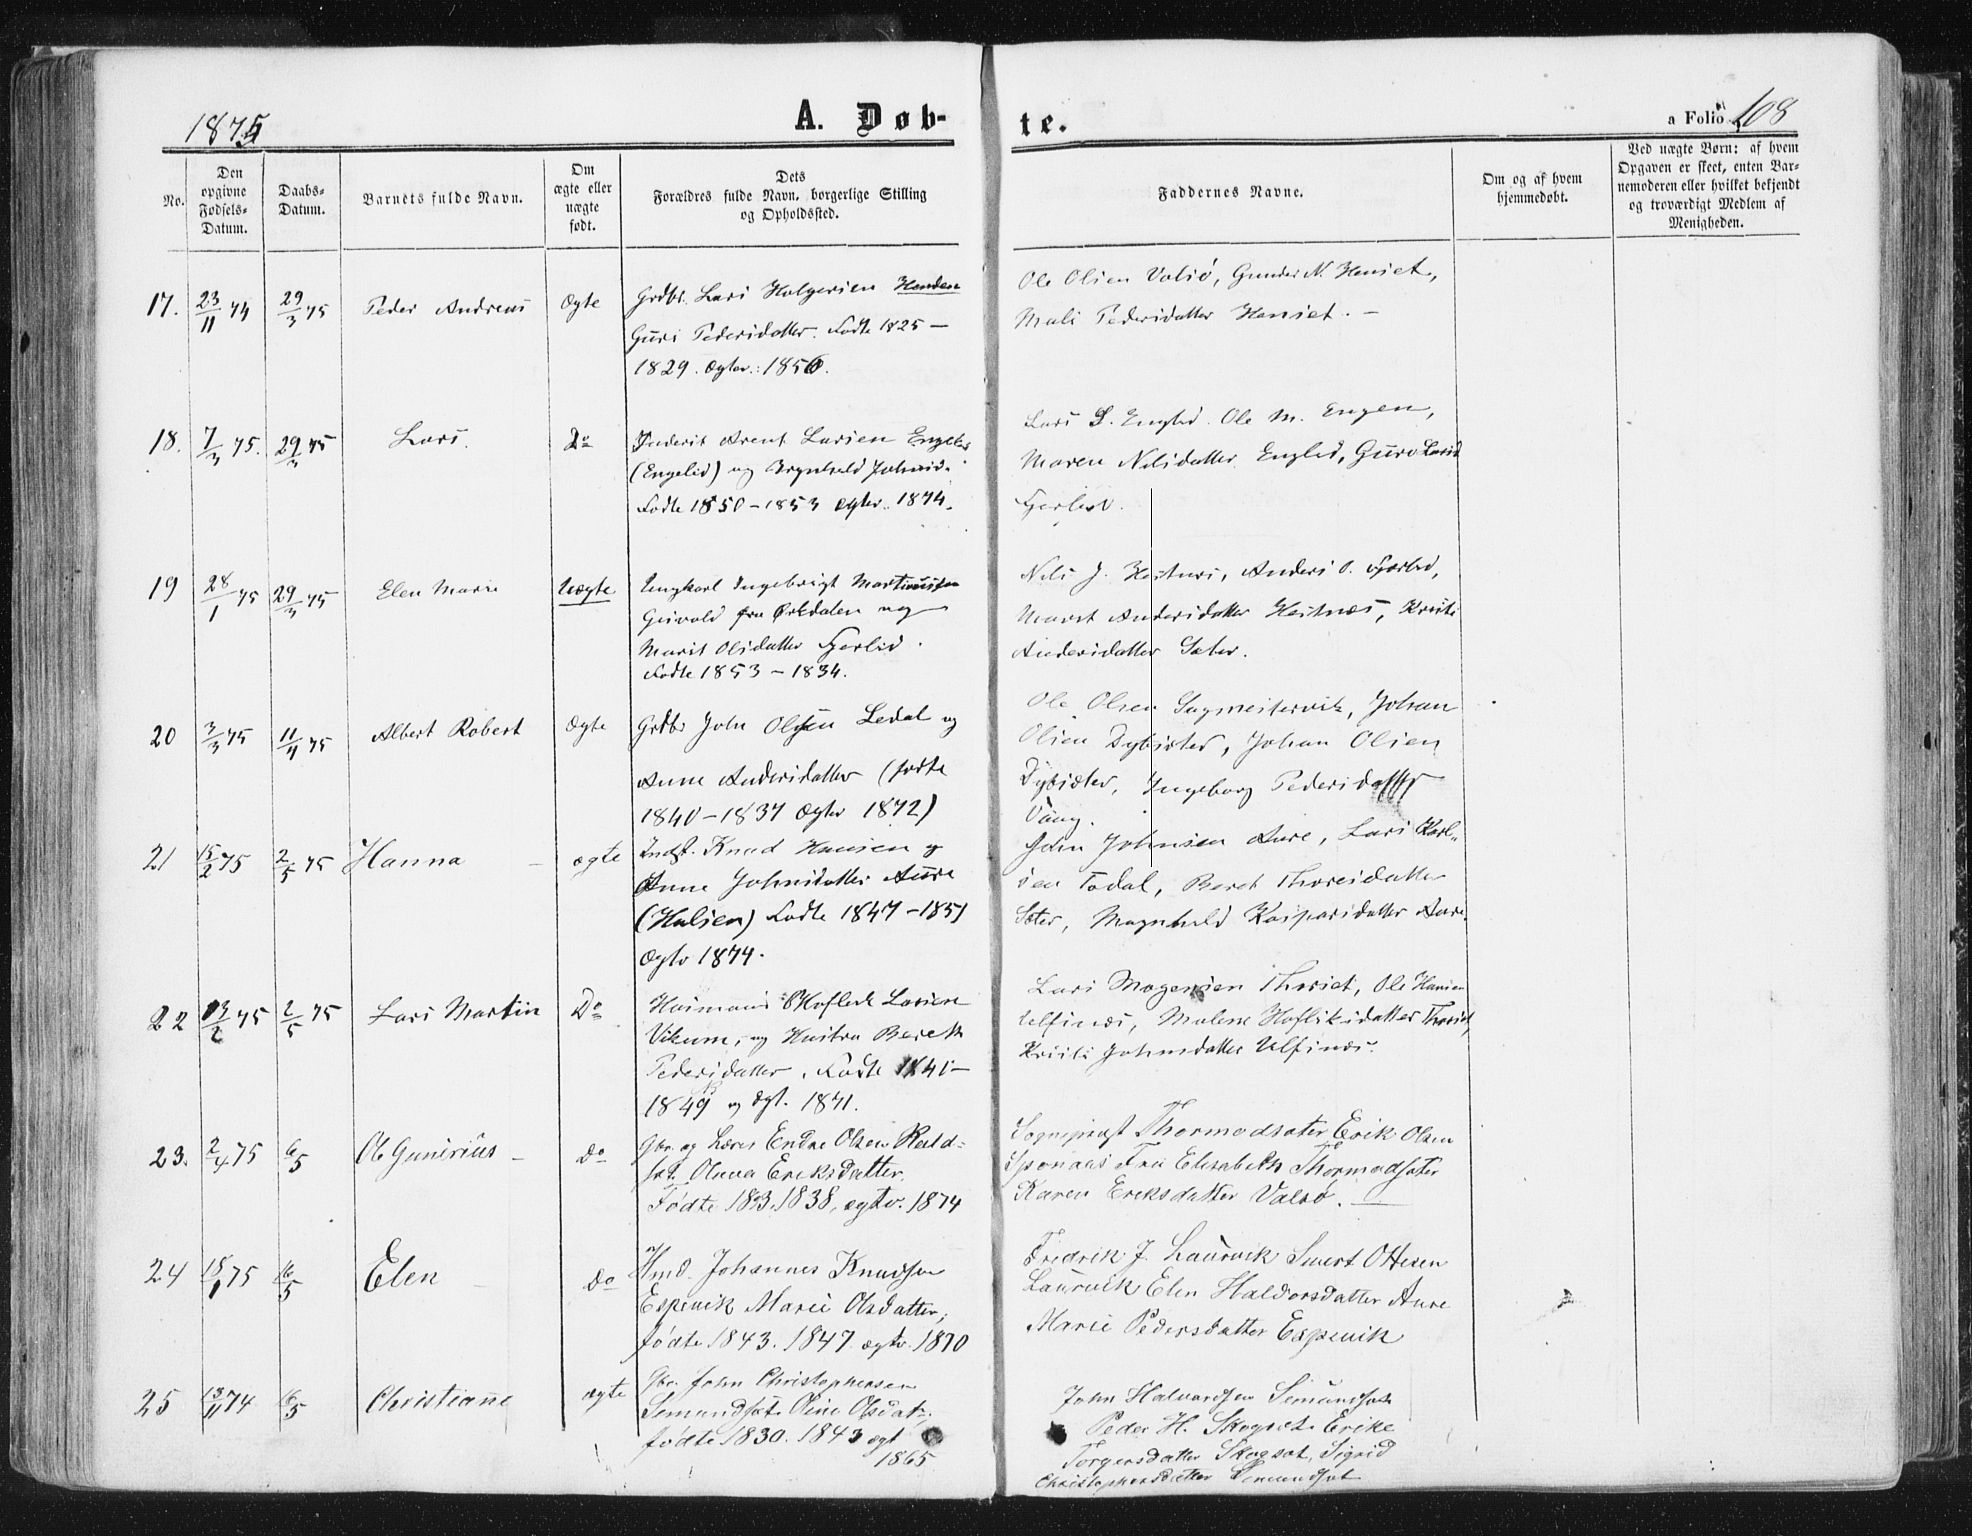 1875
A. Døb-
te.
a Folio 108
No.
Den opgivne Fødsels-Datum.
Daabs-Datum.
Barnets fulde Navn.
Om ægte eller uægte født.
Dets Forældres fulde Navn, borgerlige Stilling og Opholdssted.
Faddernes Navne.
Om og af hvem hjemmedøbt.
Ved uægte Børn: af hvem Opgaven er skeet, enten Barnemoderen eller hvilket bekjendt og troværdigt Medlem af Menigheden.
17. 23/11 74 29/3 75 Peder Andreas Ægte
Grdbr. Lars Holgersen Henden
Guri Pedersdatter. Fødte 1825 –
1829. Ægtev.: 1856.
Ole Olsen Valsø, Gunder N. Henset,
Mali Pedersdatter Henset. –
18. 7/3 75. 29/3 75 Lars. Do
Inderst Arent Larsen Engelie
(Engelid) og Brynhild Johnsd.
Fødte 1850 – 1853 Ægtev. 1874.
Lars L. Englid. Ole M. Engen,
Maren Nilsdatter Englid, Guro Larsd
Fjerlid.
19 28/1 75 29/3 75 Elen Marie Uægte
Ungkarl Ingebrigt Martinussen
fra Ørkdalen og
Marit Olsdatter Fjerlid.
Fødte 1853 – 1834.
Nils J. Hestnes, Anders O. Fjerlid,
Marit Andersdatter Hestnes, Kristi
Andersdatter Sæter.
20 3/3 75 11/4 75 Albert Robert Ægte
Grdbr John Olsen Ledal og
Anne Andersdatter (fødte
1840 – 1837 Ægtev 1872)
Ole Olsen Sagmestervik, Johan
Olsen Dybsæter, Johan Olsen
Dybsæter, Ingeborg Pedersdatter
Vaag.
21 15/2 75 2/5 75 Hanna – ægte
Indst. Knud Hansen og
Anne Johnsdatter Aure
(Halsen) Fødte 1847 – 1851
Ægtv 1874.
John Johnsen Aure, Lars Karl-
sen Todal, Beret Thoresdatter
Sæter, Magnhild Kaspersdatter Aure.
22 13/2 75 2/5 75 Lars Martin Do
Huusmand Hofleck Larsen
Vikum, og Hustru Bereth
Pedersdatter. Fødte 1841 –
1849 og Ægt. 1871.
Lars Mogensen Thorset, Ole Hansen
Ulfsnes, Malene Hofliksdatter Thorset,
Kristi Johnsdatter Ulfsnes.
23. 2/4 75 6/5 Ole Gunerius – do
Gbr. og Lærer Endre Olsen Rald-
set. Oluva Eriksdatter.
Fødte 1838, ægtv. 1874
Sogneprest Thormodsæter Erik Olsen
Sponaas Fru Elisabeth Thormodsæter
Karen Eriksdatter Valsø. –
24 18/1 75 16/5 Elen – do
Hmd. Johannes Knudsen
Espevik Marie Olsdatter,
fødte 1843. 1847. ægtv. 1870
Fredrik J. Laurvik Sivert Ottesen
Laurvik Elen Haldorsdatter Aure
Marie Pedersdatter Espevik
25 13/11 74 16/5 Christiane ægte
Gbr. John Christophersen
Semundset. Oline Olsdat-
fødte 1830. 1843 ægt
1865
John Halvorsen Semundset
Peder H. Skogset. Erike
Torgersdatter Skogset, Sigrid
Christophersdatter Semundset